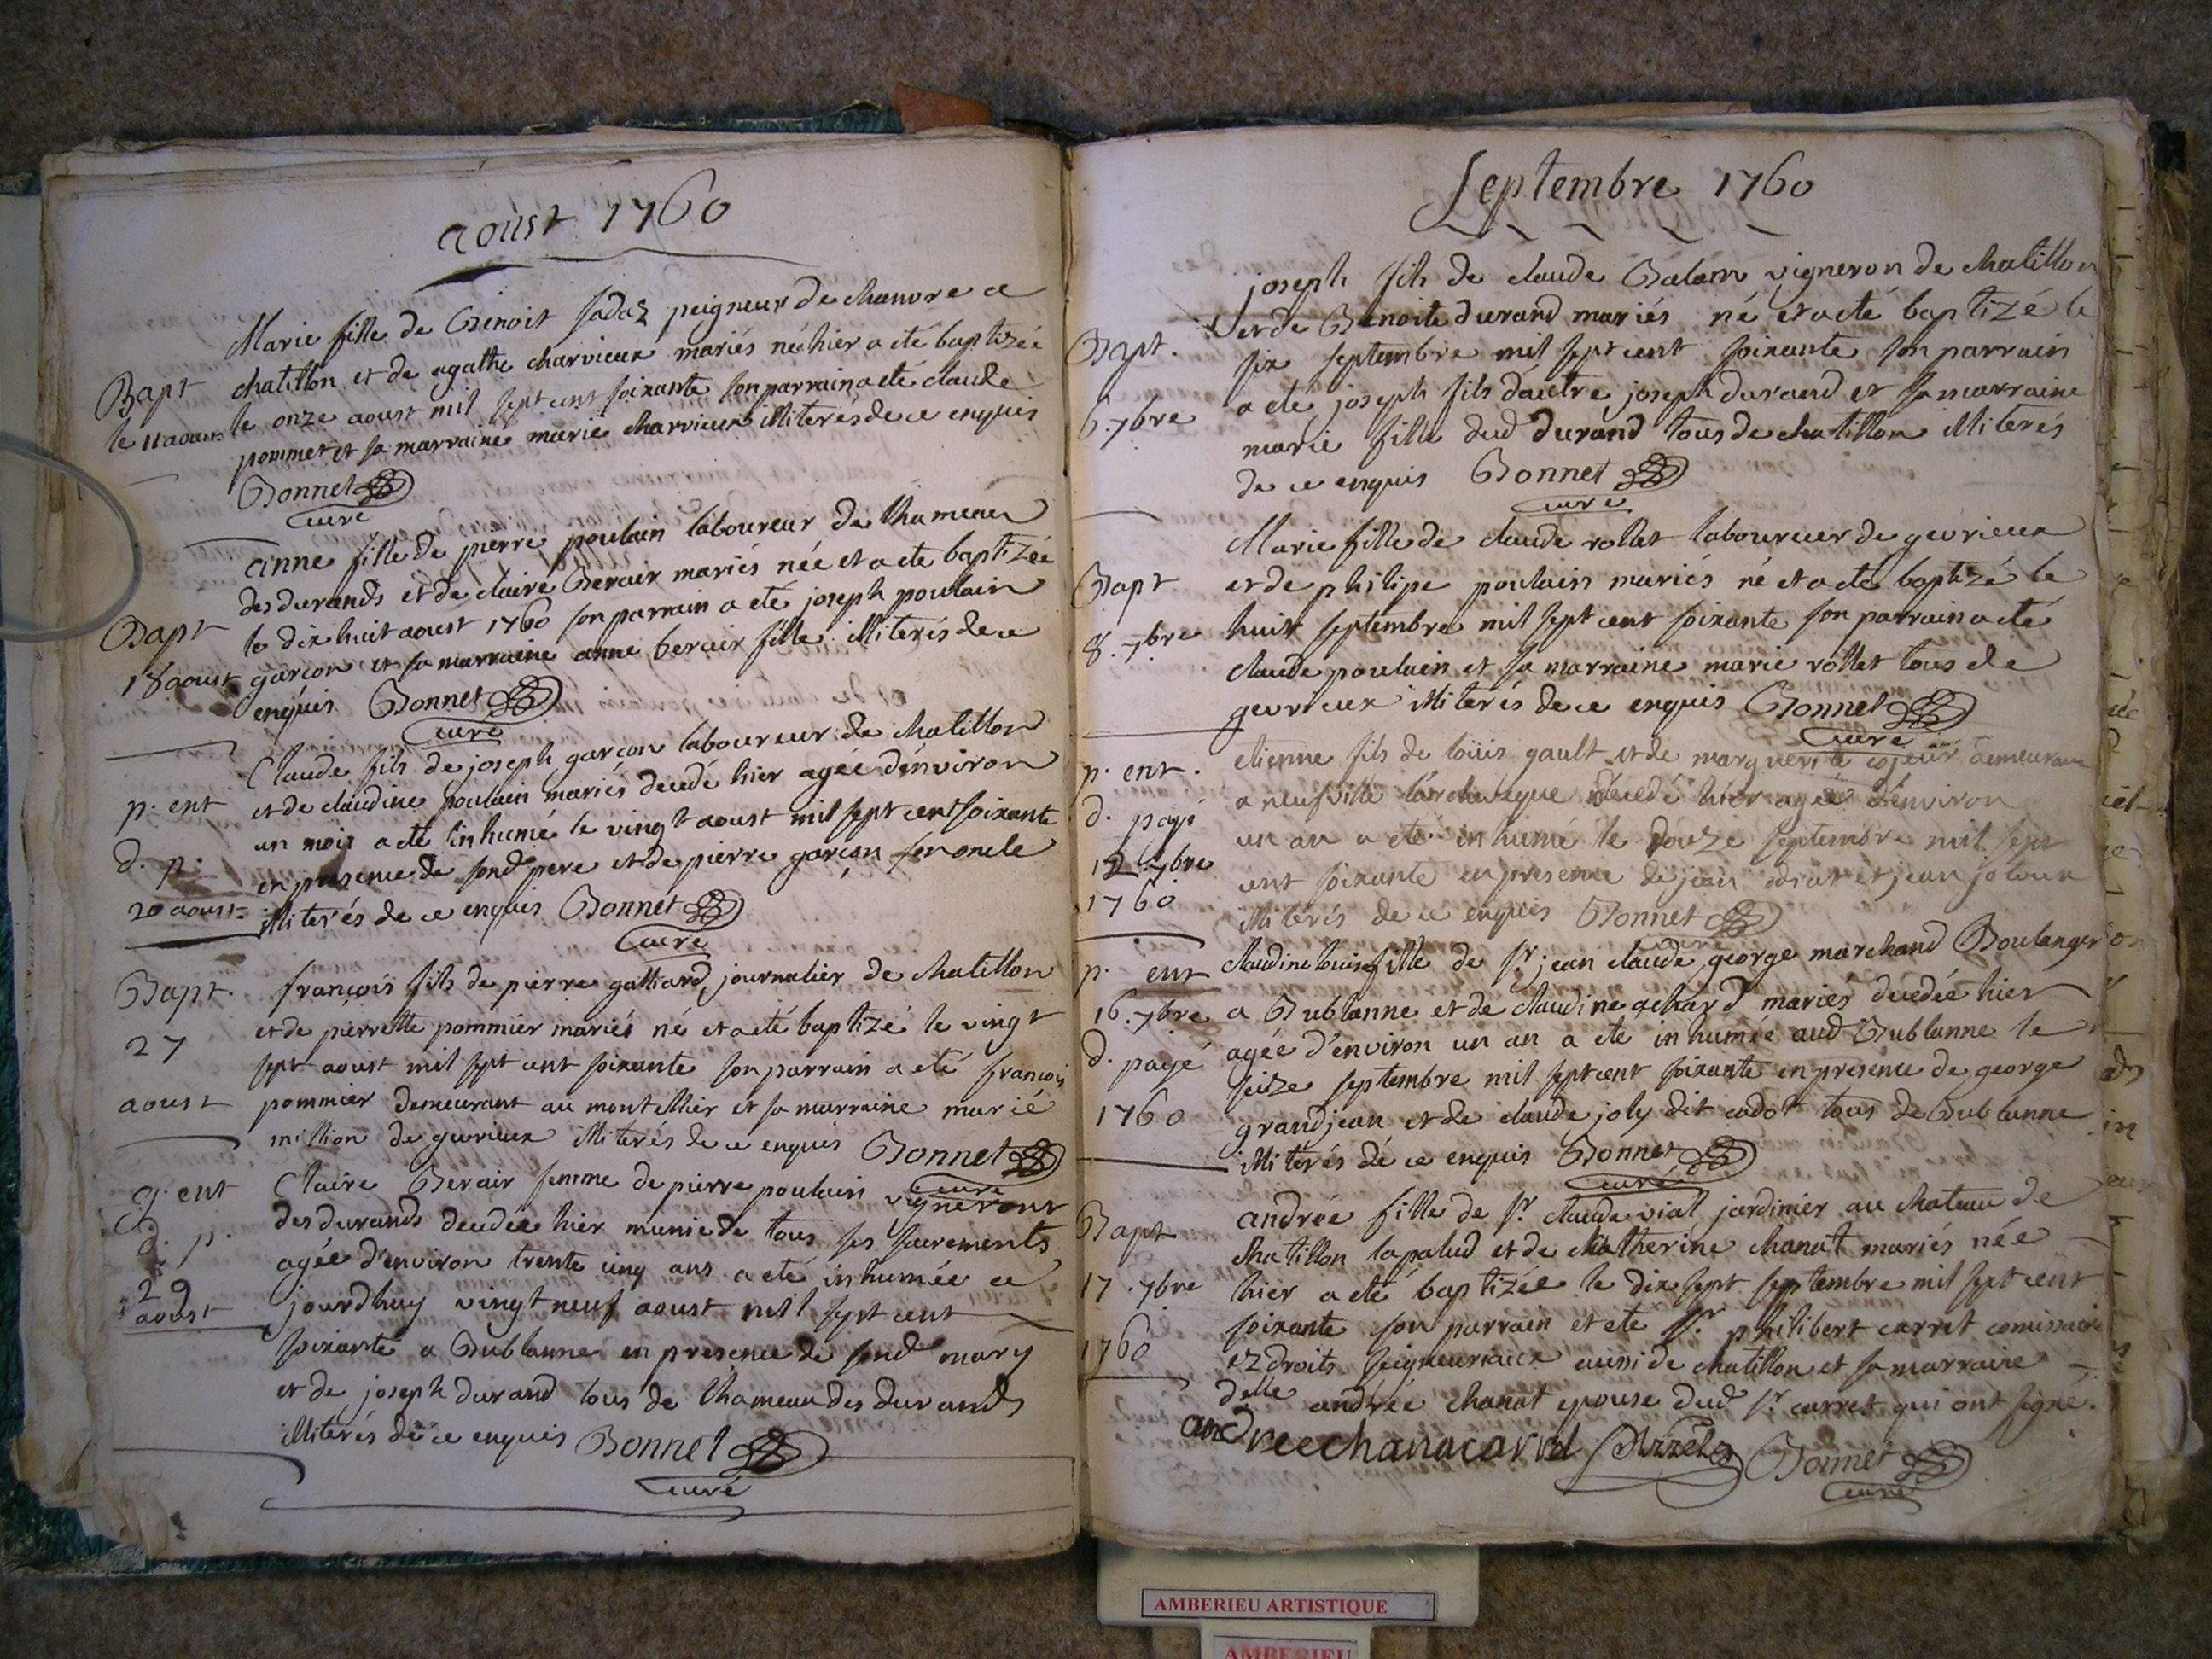 aoust 1760
Marie fille de Benoit sadaz peigneur de chanvre a
chatillon et de agathe charvieux mariés néé hier a eté baptizée
Bapt
le 11 aoust
le onze aoust mil sept cent soixante son parrain a eté claude
pommet et sa marraine marie charvieux illiterés de ce enquis
Bonnet
curé
anne fille de pierre poulain laboureur de lhameau
des durands et de claire Berair mariés née et a eté baptizée
Bapt
18 aoust
le dix huit aoust 1760 son parrain a eté joseph poulain
garcon et sa marraine anne berair fille illiterés de ce
enquis Bonnet
curé
Claude fils de joseph garcon laboureur de chatillon
et de claudine poulain mariés decedé hier agée d'environ
p. ent
d. p.
20 aoust
un mois a eté inhumé le vingt aoust mil sept cent soixante
en presence de sond pere et de pierre garçon son oncle
illiterés de ce enquis Bonnet
curé
Bapt.
27
aoust
françois fils de pierre galliard journalier de chatillon
et de pierrette pommier mariés né et a eté baptizé le vingt
sept aoust mil sept cent soixante son parrain a eté françois
pommier demeurant au montellier et sa marraine marié
million de gevrieux illiterés de ce enquis Bonnet
curé
g. ent
d. p.
29
aoust
Claire Berair femme de pierre poulain vigneront
des durands decedée hier munie de tous ses sacrements
agée d'environ trente cinq ans a eté inhumée ce
jourdhuy vingt neuf aoust mil sept cent
soixante a Dublanne en presence de sond mary
et de joseph durand tous de lhameau des durands
illiterés de ce enquis Bonnet
curé
Septembre 1760
joseph fils de claude Balam vigneron de chatillon
et de Benoite durand mariés né et a eté baptizé le
Bapt.
6. 7bre
six septembre mil sept cent soixante son parrain
a eté joseph fils d'autre joseph durand et sa marraine
marie fille dud durand tous de chatillon illiterés
de ce enquis Bonnet
curé
Marie fille de claude rollet laboureur de gevrieux
Bapt
8. 7bre
et de philipe poulain mariés né et a eté baptizé le
huit septembre mil sept cent soixante son parrain a eté
claude poulain et sa marraine marie rollet tous de
gevrieux illiterés de ce enquis Bonnet
curé
p. ent.
d. payé
12. 7bre
1760
etienne fils de loüis gault et de marguerite cojeur demeurant
a neufville l'archeveque decedé hier agée d'environ
un an a eté inhumé le douze septembre mil sept
cent soixante en presence de jean et jean
illiterés de ce enquis Bonnet
curé
p. ent
16. 7bre
d. payé
1760
claudine louise fille de sr jean claude george marchand Boulanger
a Dublanne et de claudine achard mariés decedée hier
agée d'environ un an a eté inhumée aud Dublanne le
seize septembre mil sept cent soixante en presence de george
grandjean et de claude joly dit cadot tous de Dublanne
illiterés de ce enquis Bonnet
curé
Bapt
17. 7bre
1760
andrée fille de sr claude vial jardinier au chateau de
chatillon lapalud et de chatherine chanat mariés née
hier a eté baptizée le dix sept septembre mil sept cent
soixante son parrain et eté sr philibert carret comissaire
ez droits seigneuriaux aussi de chatillon et sa marraine
delle andrée chanat epouse dud sr carret qui ont signé.
andreechanacarrel Bonnet
curé
AMBERIEU ARTISTIQUE
AMBERIEU